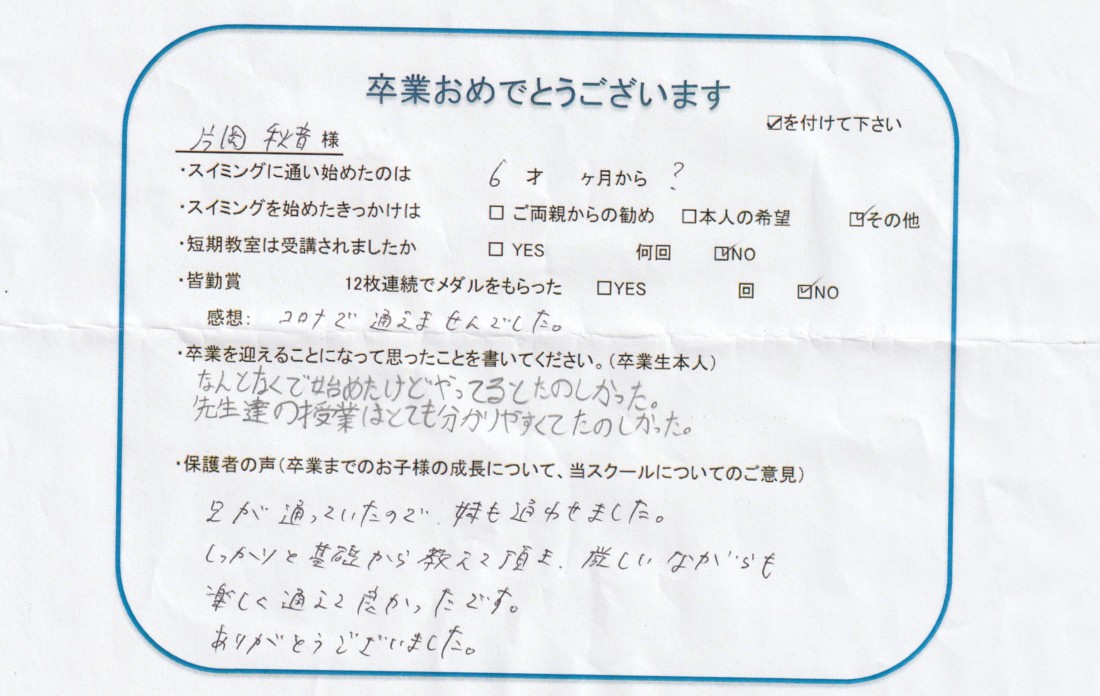 卒業おめでとうございます
☑を付けて下さい
片岡 秋音 様
・スイミングに通い始めたのは 6 才 ヶ月から ?
・スイミングを始めたきっかけは □ ご両親からの勧め □本人の希望 ☑その他
・短期教室は受講されましたか □ YES 何回 ☑NO
・皆勤賞 12枚連続でメダルをもらった □YES 回 ☑NO
感想: コロナで通えませんでした。
・卒業を迎えることになって思ったことを書いてください。(卒業生本人)
なんとなくで始めたけどやってるとたのしかった。
先生達の授業はとても分かりやすくてたのしかった。
・保護者の声(卒業までのお子様の成長について、当スクールについてのご意見)
兄が通っていたので、妹も通わせました。
しっかりと基礎から教えて頂き、厳しいながらも
楽しく通えて良かったです。
ありがとうございました。